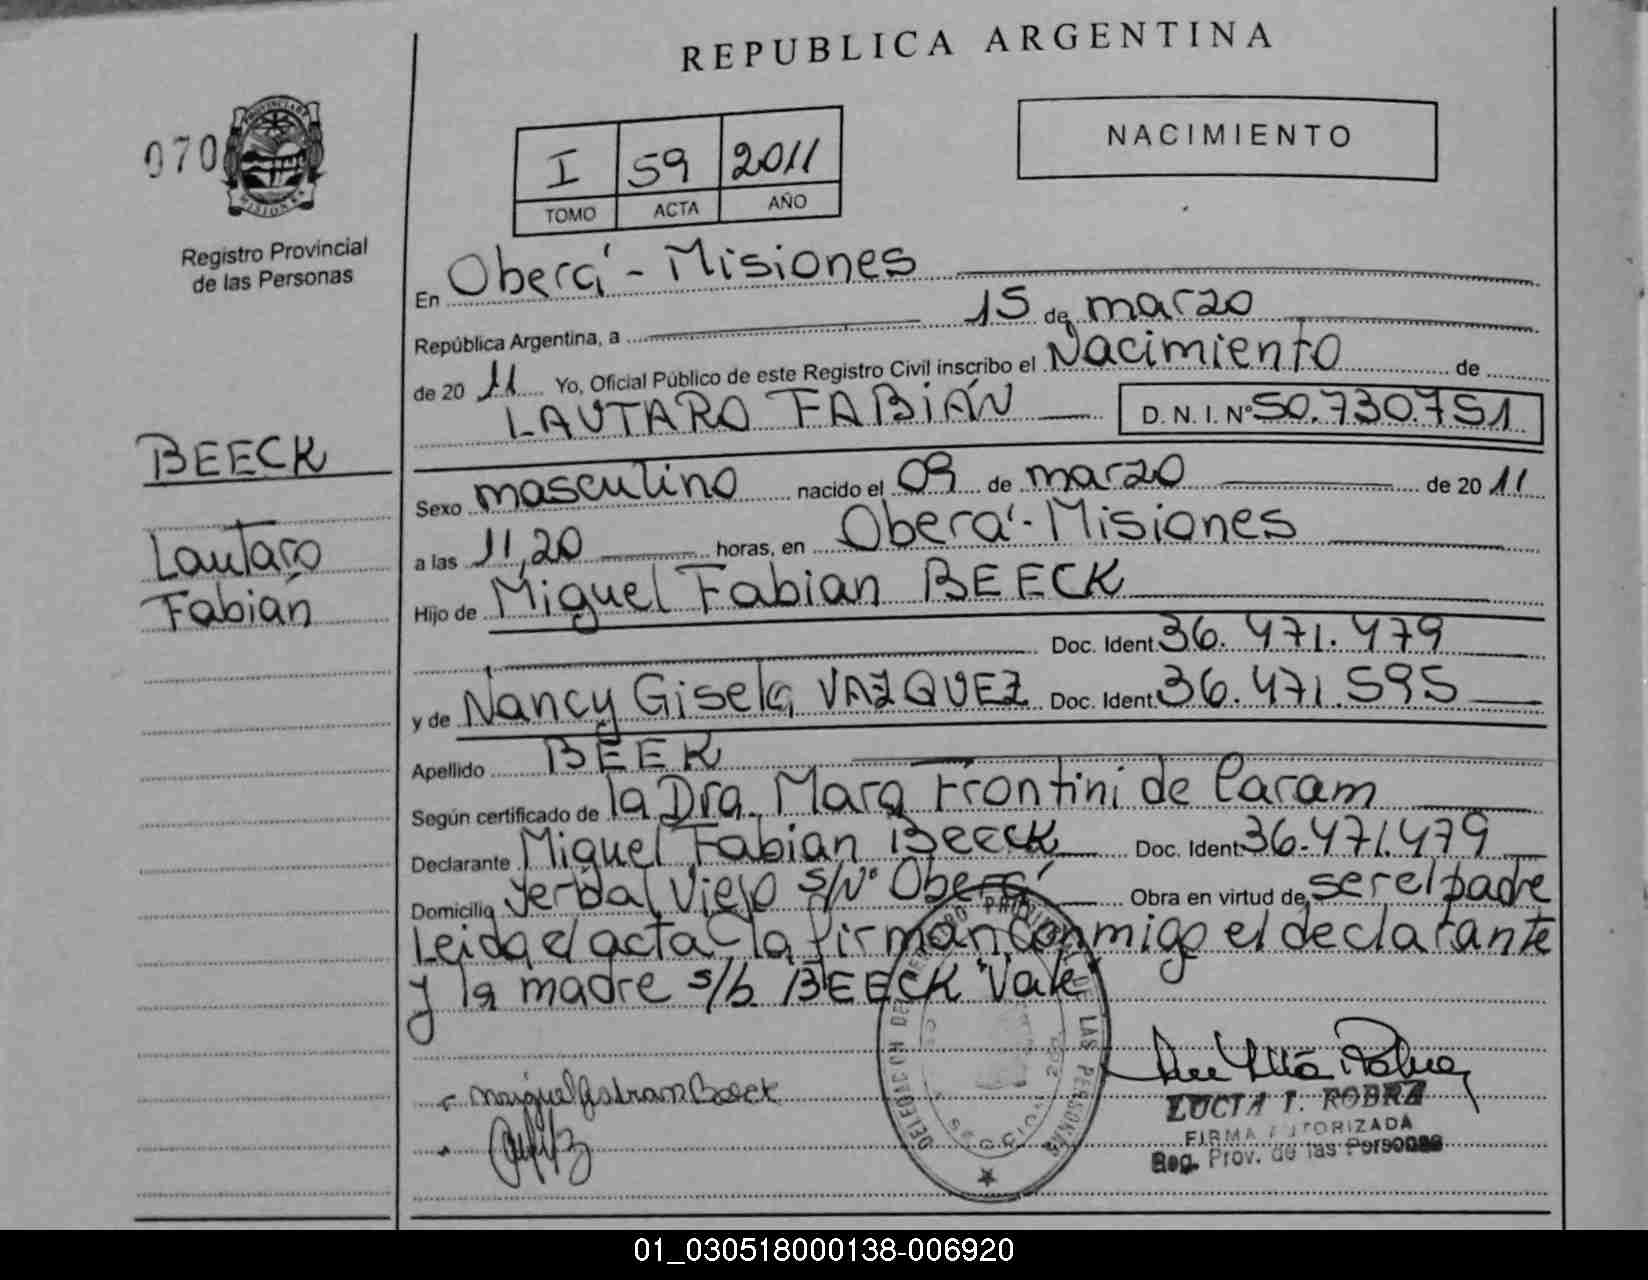 REPUBLICA ARGENTINA
070
PROVINCIA DE
MISIONES
Registro Provincial
de las Personas
I 59 2011
TOMO ACTA AÑO
NACIMIENTO
En Oberá - Misiones
República Argentina, a 15 de marzo
de 20 11 Yo, Oficial Público de este Registro Civil inscribo el Nacimiento de
LAUTARO FABIÁN D. N. I. Nº 50.730.751
BEECK
Lautaro
Fabián
Sexo masculino nacido el 09 de marzo de 20 11
a las 11,20 horas, en Oberá - Misiones
Hijo de Miguel Fabian BEECK
Doc. Ident. 36.471.479
y de Nancy Gisela VAZQUEZ Doc. Ident. 36.471.595
Apellido BEEK
Según certificado de la Dra. Mara Frontini de Caram
Declarante Miguel Fabian Beeck Doc. Ident. 36.471.479
Domicilio Yerbal Viejo s/Nº Oberá Obra en virtud de ser el padre
Leida el acta la firman conmigo el declarante
y la madre s/b. BEECK "Vale
DELEGACION DEL REGISTRO PROVINCIAL DE LAS PERSONAS
Miguel Fabian Beeck
LUCIA T.
FIRMA AUTORIZADA
Reg. Prov. de las Personas
01_030518000138-006920